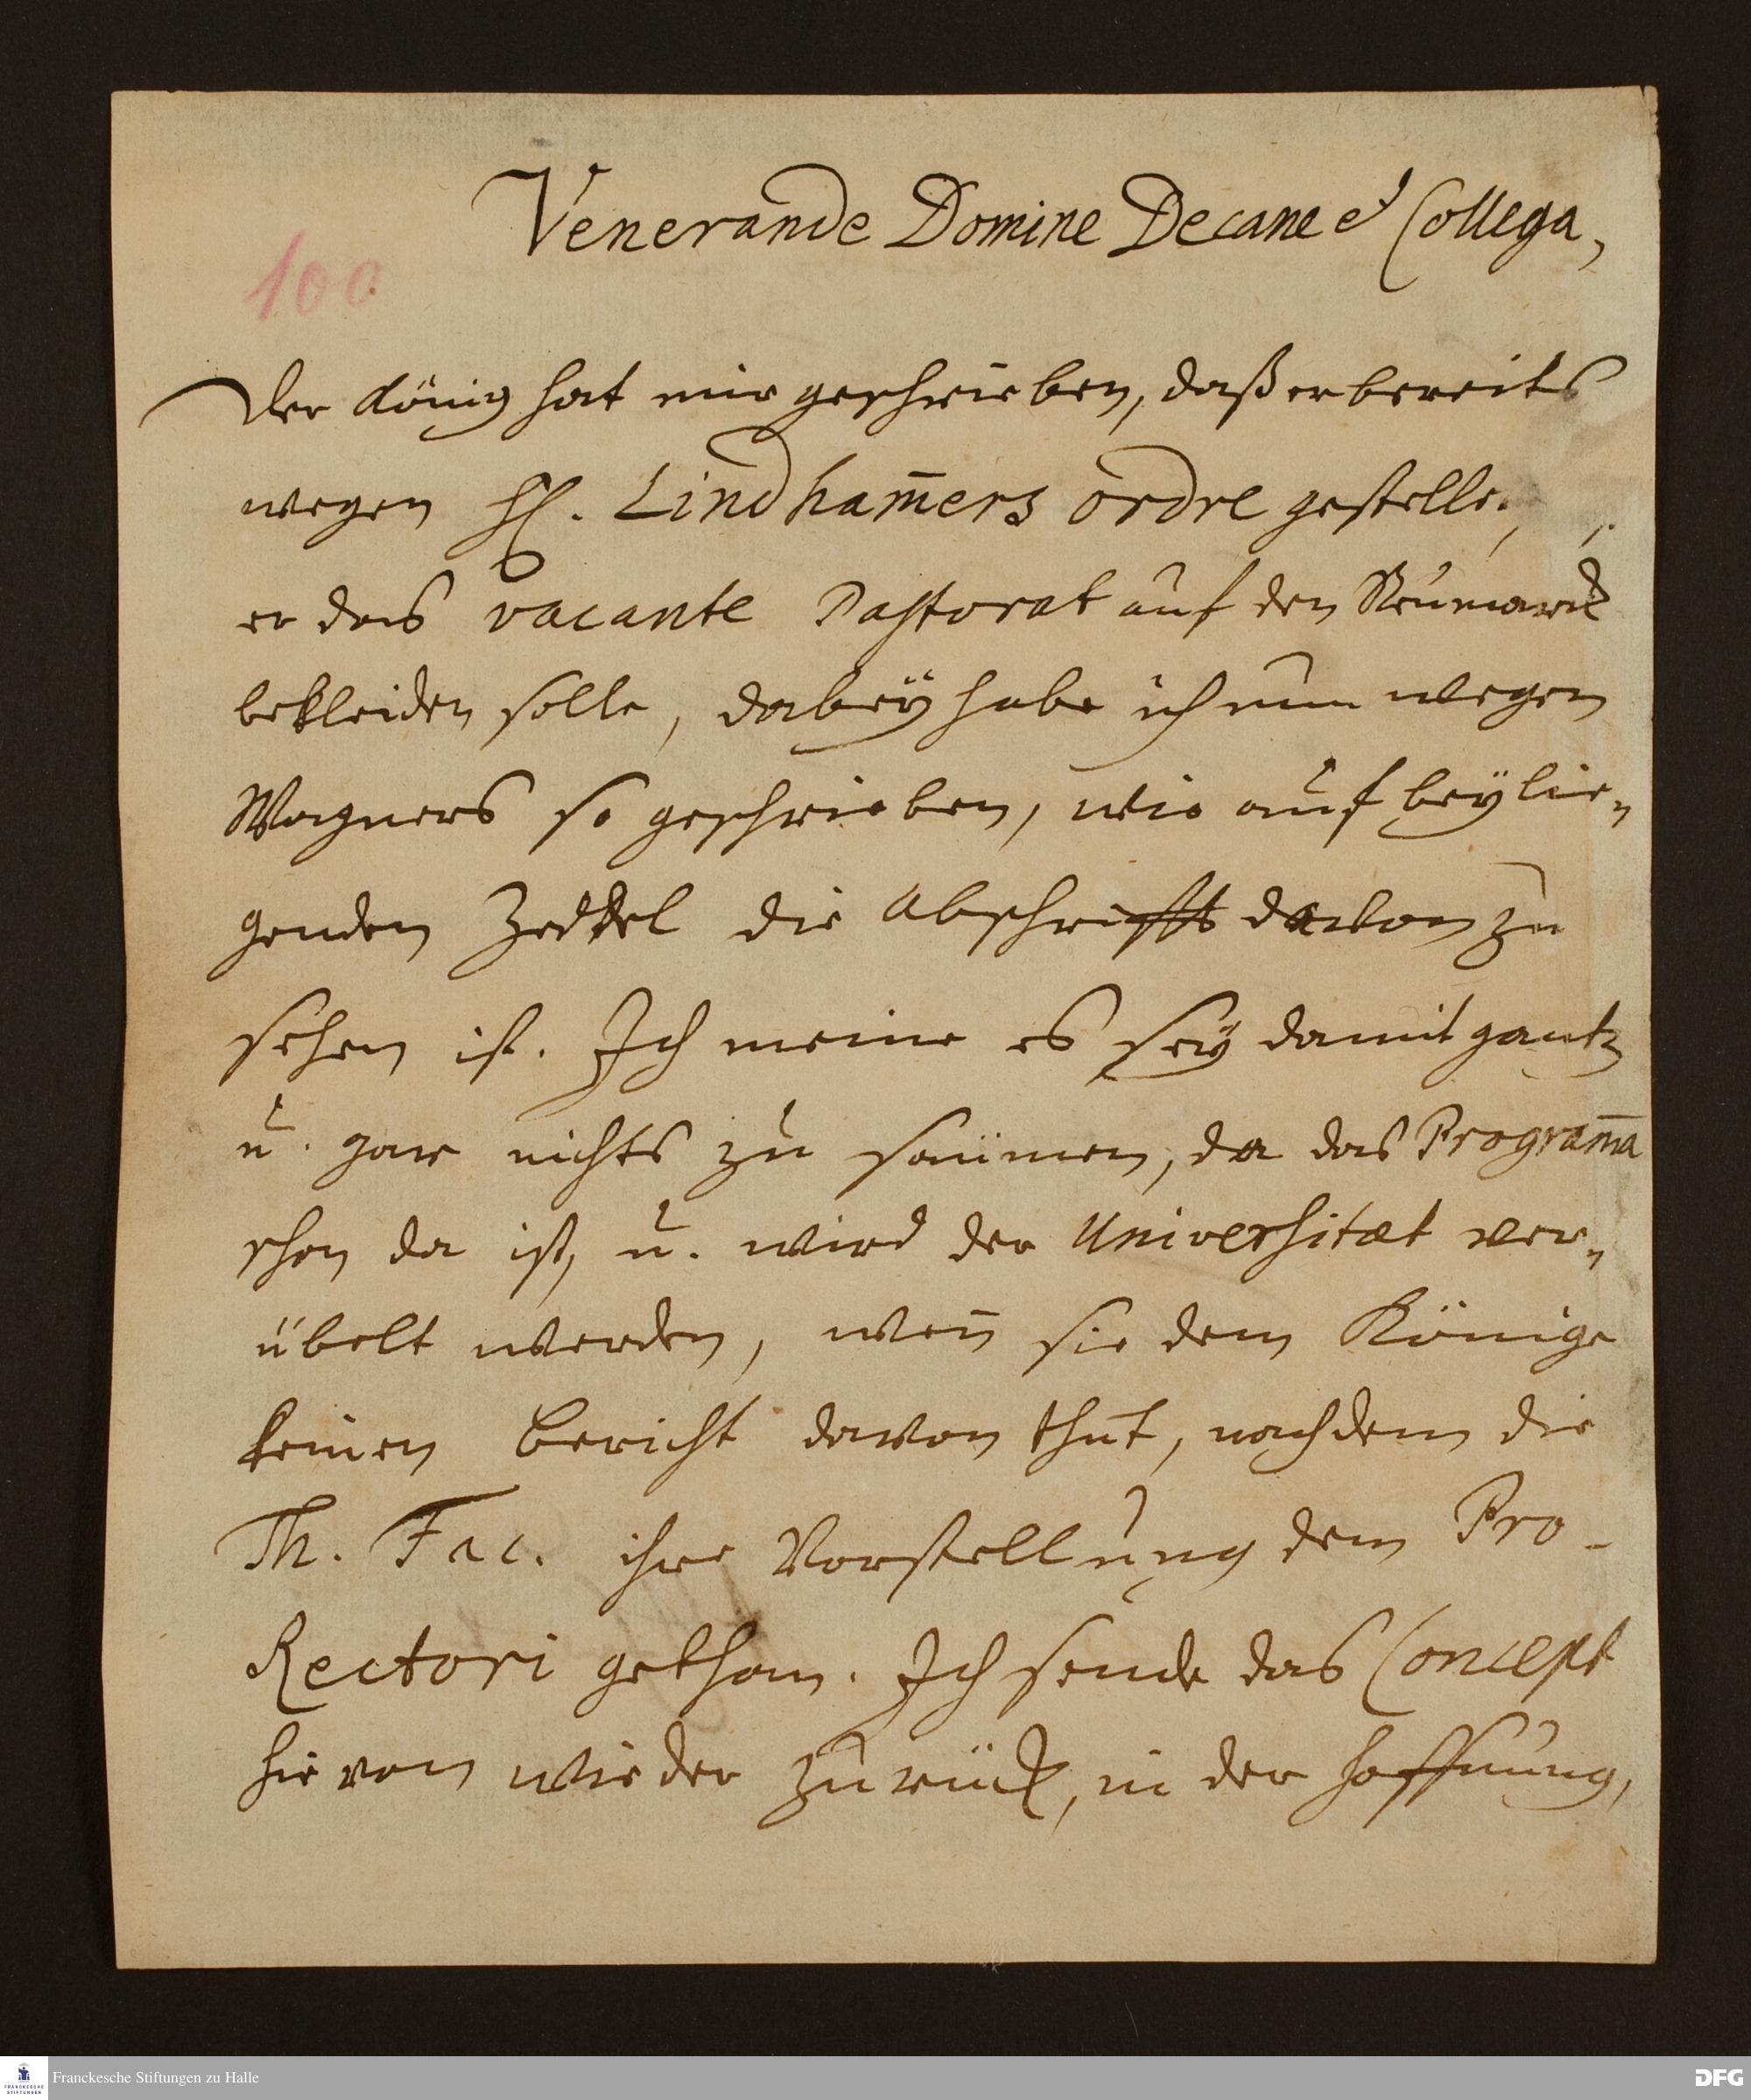 Venerande Domine Decane et Collega,
100
Der König hat mir geschrieben, daß er bereits
wegen H. Lindham̅ers ordre gestellt,
er das vacante Pastorat auf den Neumarck
bekleiden solle, dabeÿ habe ich nun wegen
Wagners so geschrieben, wie auf beÿlie„
genden Zeddel die Abschrifft davon zu
sehen ist. Ich meine es seÿ damit gantz
u. gar nichts zu säumen, da das Program̅a
schon da ist, u. wird der Universitæt ver„
übelt werden, wen̅ sie dem Könige
keinen Bericht davon thut, nachdem die
Th. Fac. ihre Vorstellung dem Pro-
Rectori gethan. Ich sende das Concept
hievon wieder zurück, in der Hoffnung,
Franckesche Stiftungen zu Halle
FRANCKESCHE
STIFTUNGEN
DFG